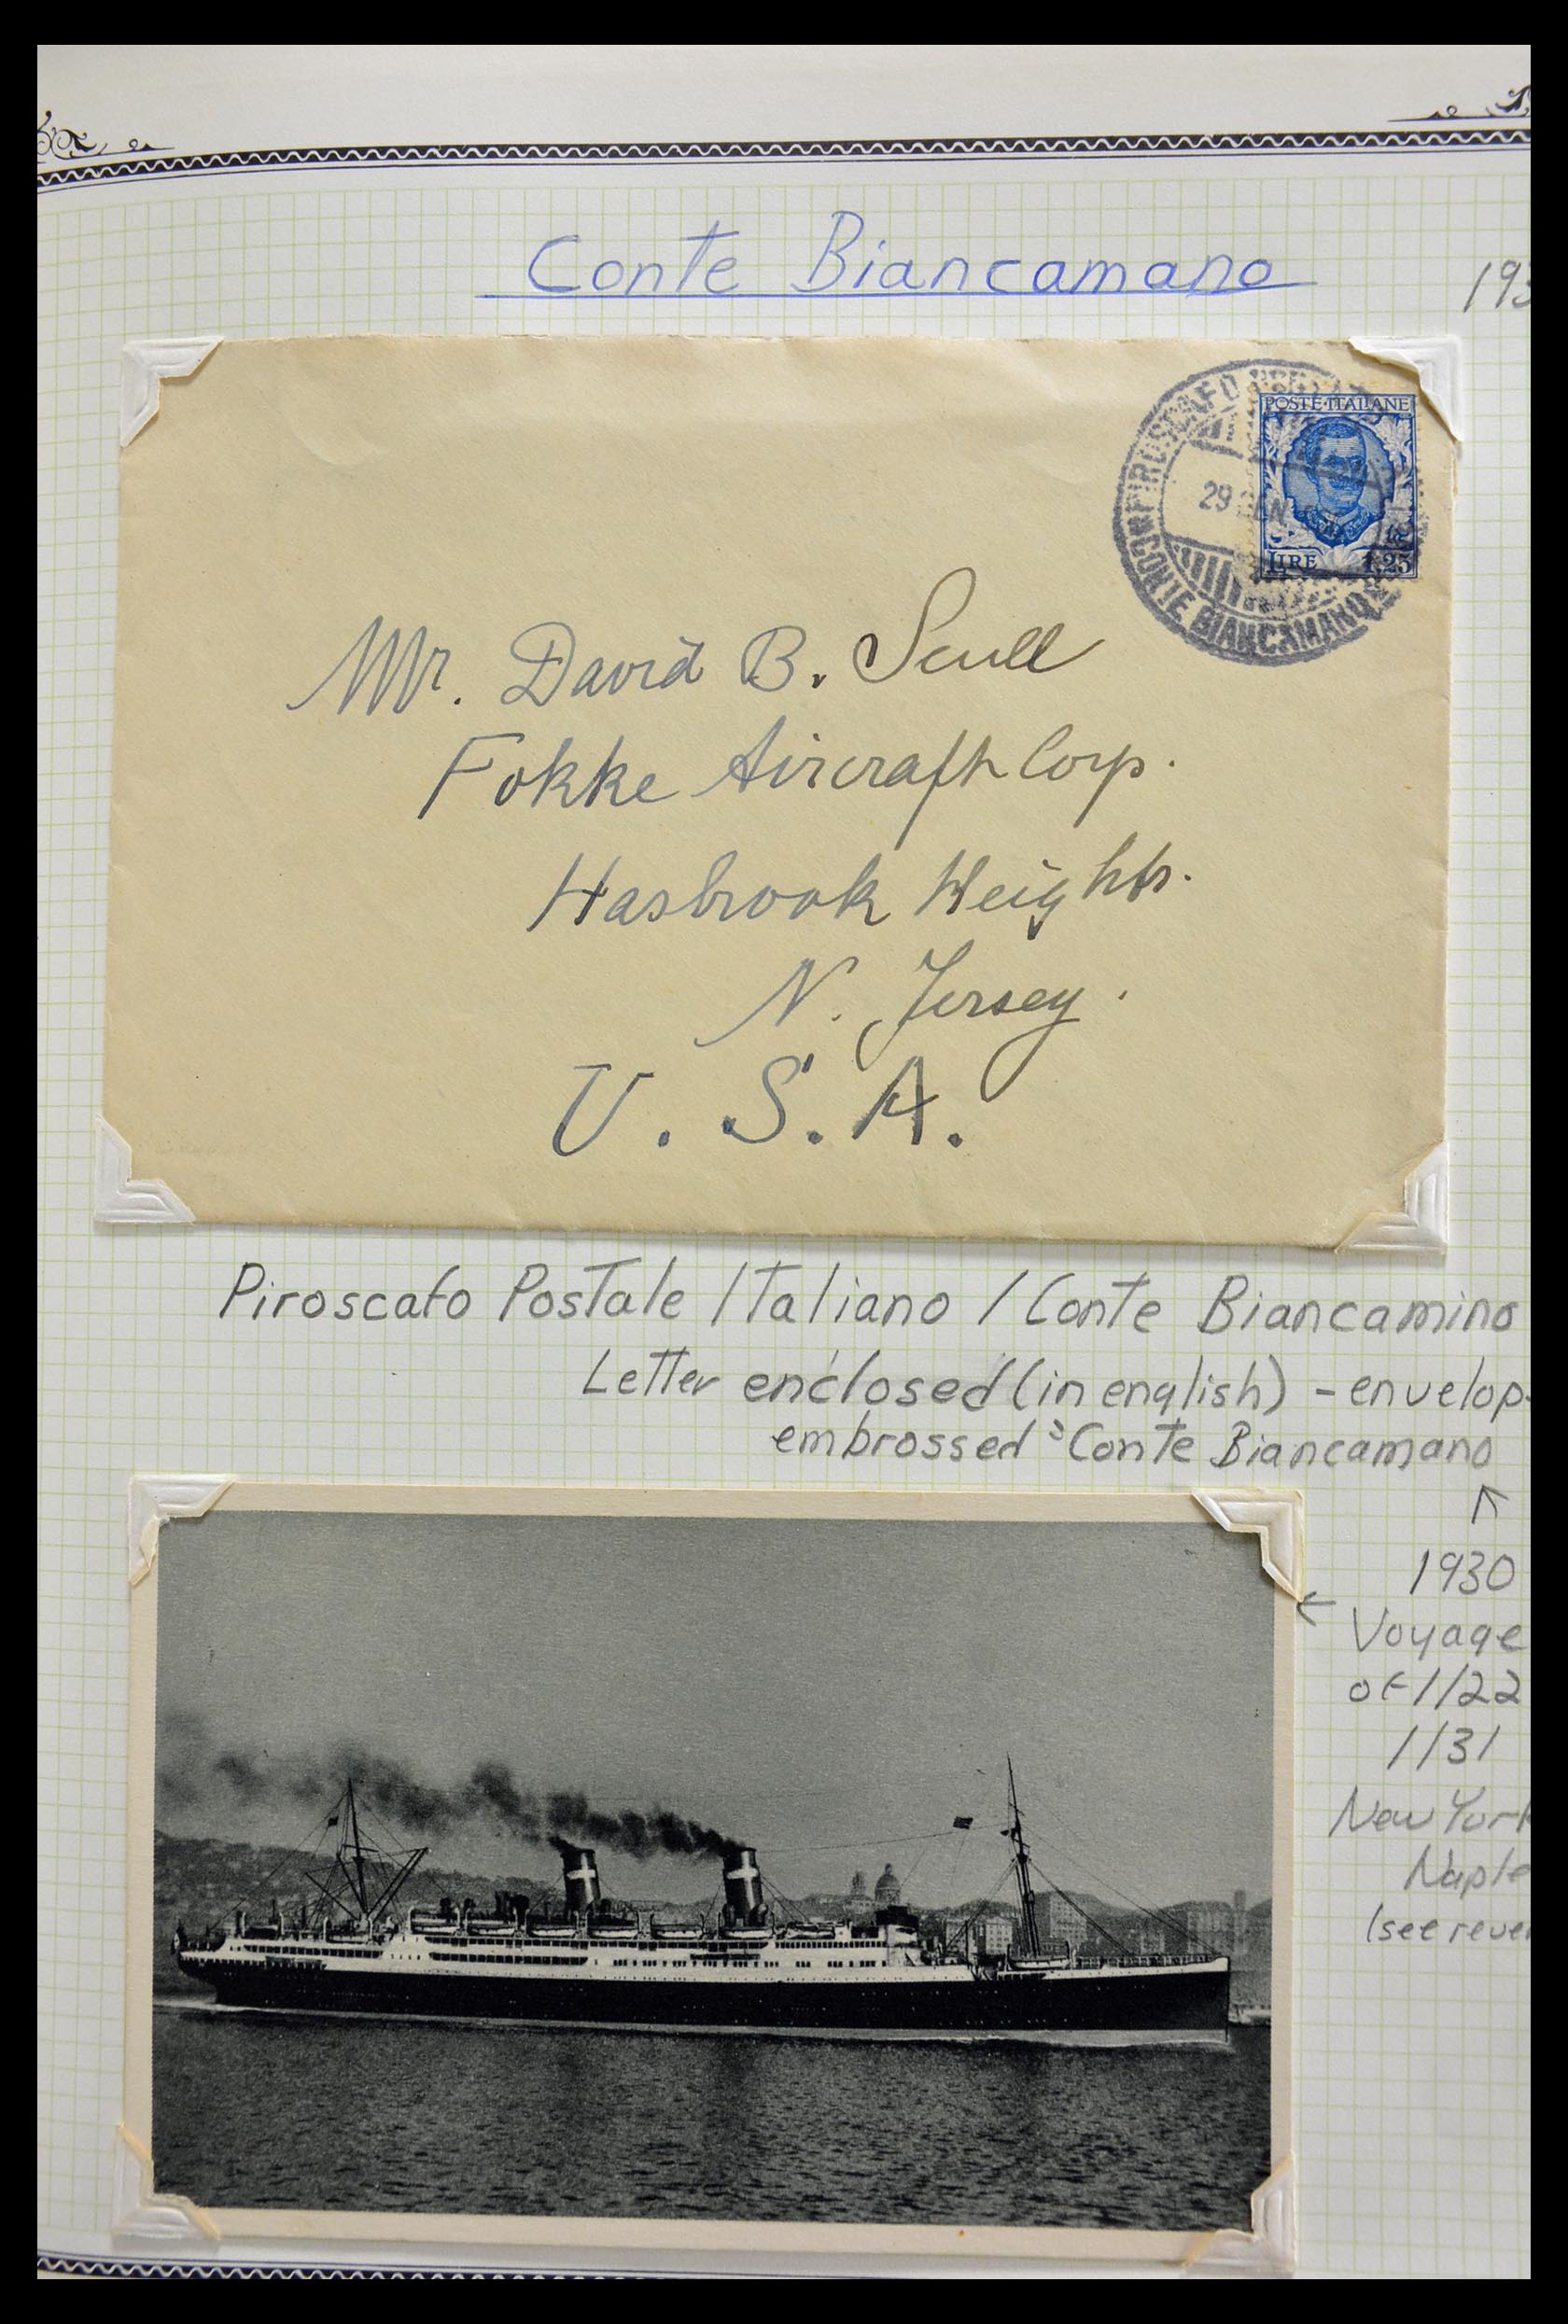 Conte Biancamano
193
PIROSCAFO
POSTE·ITALIANE
29 GEN
LIRE 1,25
CONTE BIANCAMANO
Mr. David B. Scull
Fokke Aircraft Corp.
Hasbrook Heights.
N. Jersey.
U.S.A.
Piroscafo Postale Italiano / Conte Biancamino
Letter enclosed (in english) - envelop
embrossed "Conte Biancamano
1930
Voyage
of 1/22
1/31
New York
Naple
(see rever